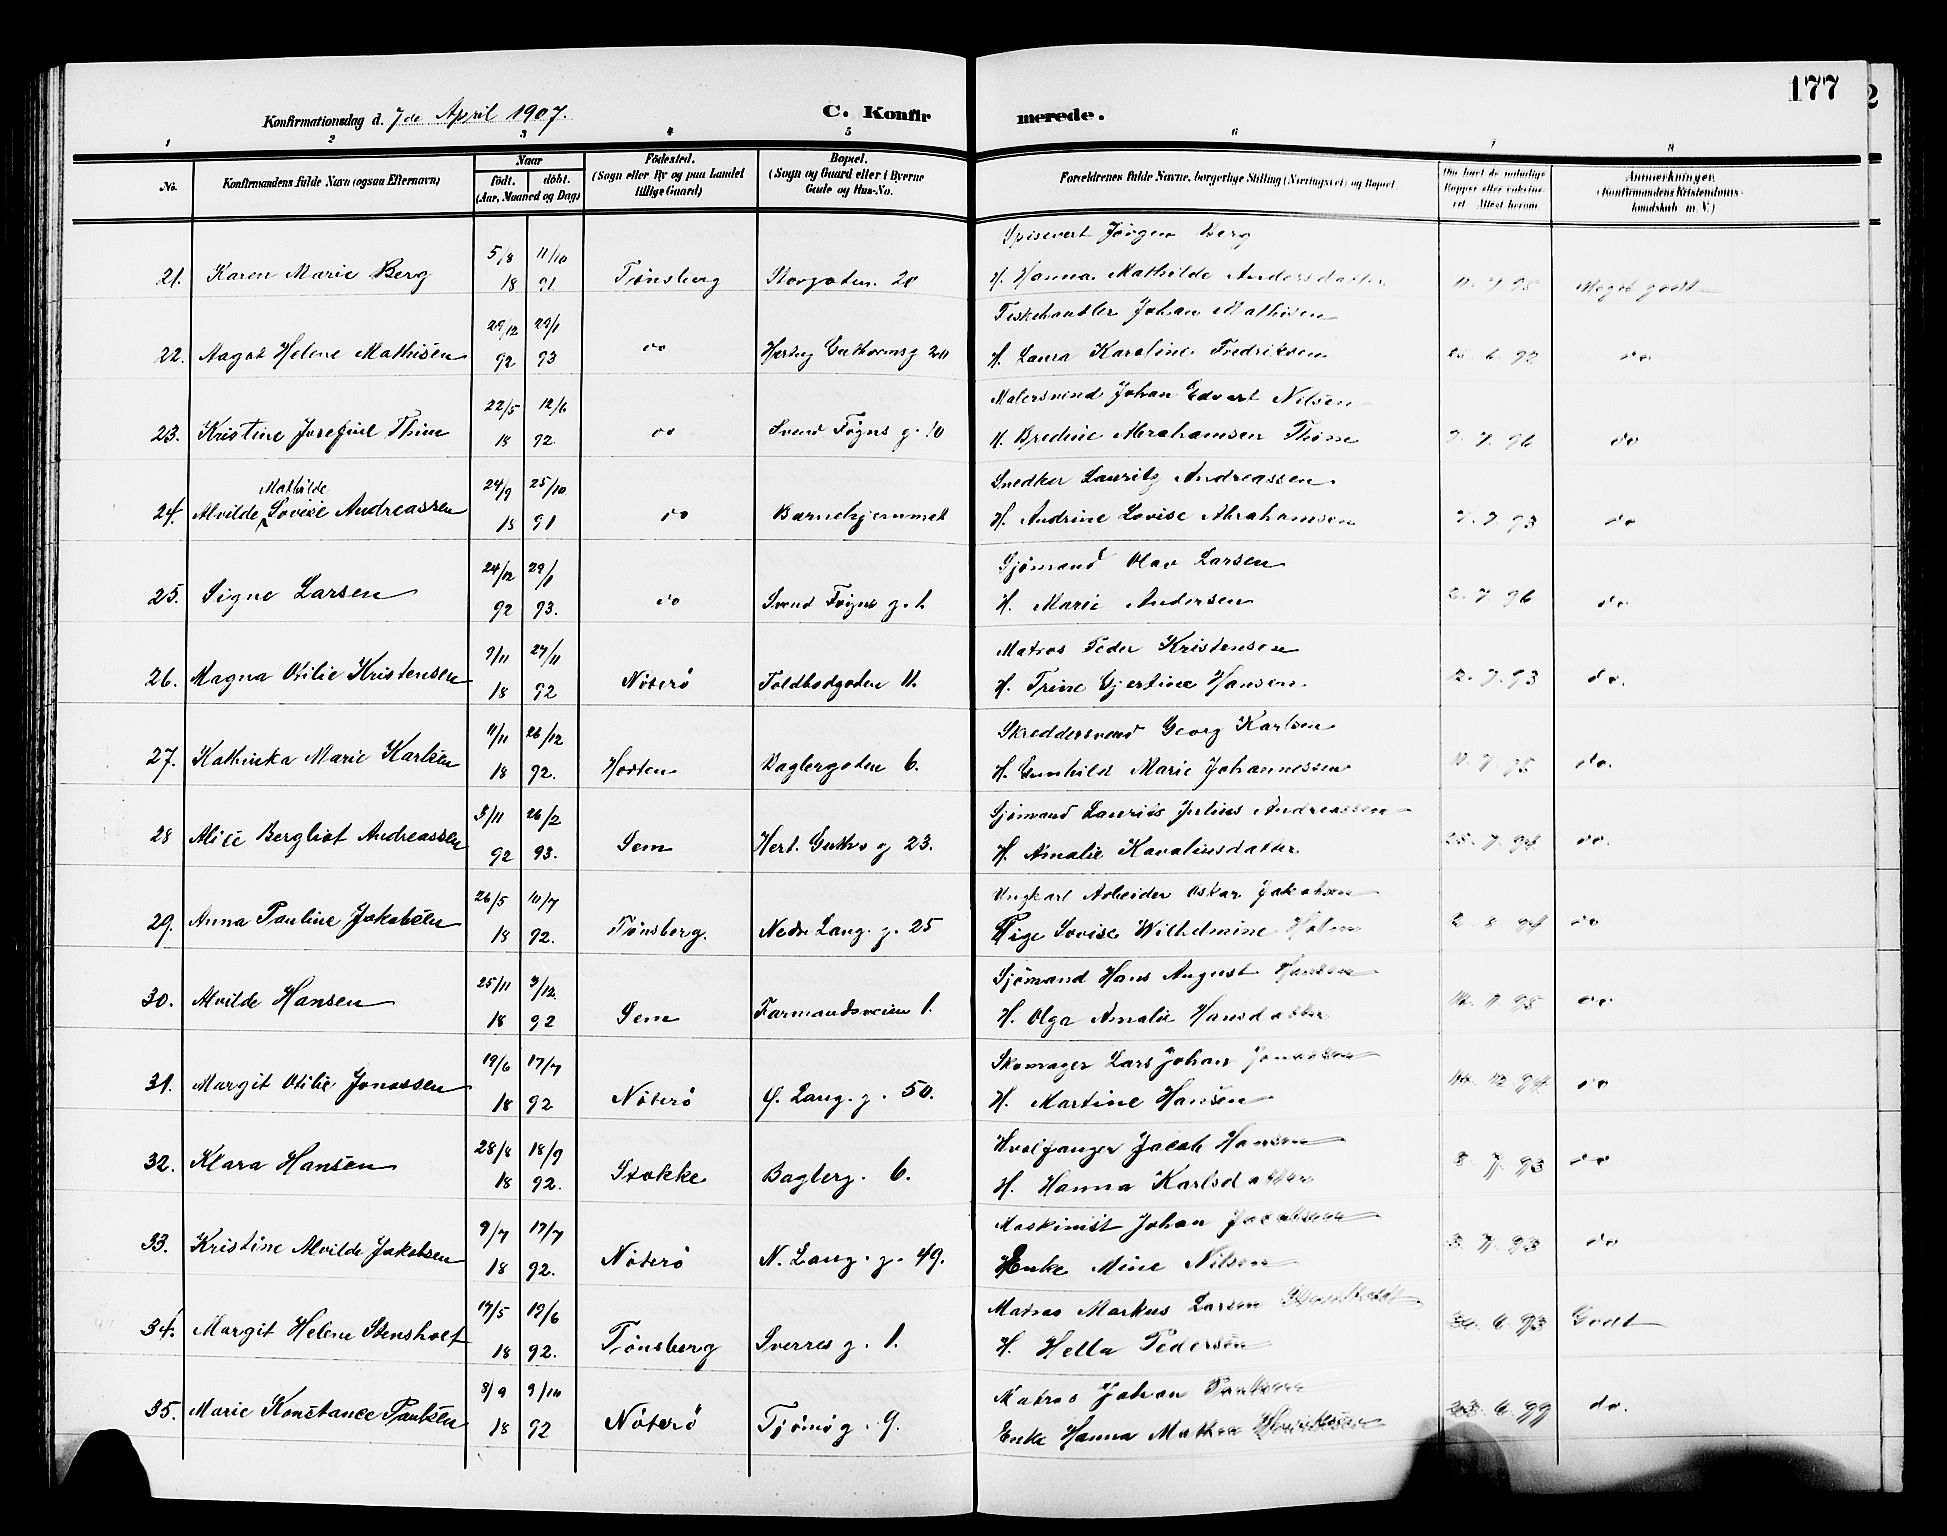 177
Konfirmationsdag d. 7de April 1907.
C. Konfirmerede.
1 2 3 4 5 6 7 8
No. Konfirmandens fulde Navn (ogsaa Efternavn) Naar født. døbt. (Aar, Maaned og Dag) Fødested. (Sogn eller By og paa Landet tillige Gaard) Bopæl. (Sogn og Gaard eller i Byerne Gade og Hus-No. Forældrenes fulde Navne, borgerlige Stilling (Næringsvei) og Bopæl. Om havt de naturlige Kopper eller vakcineret. Attest herom. Anmerkninger. (Konfirmandens Kristendomskundskab m. V.)
5/8 11/10 Spisevert Jørgen Berg
21. Karen Marie Berg 18 91 Tønsberg Storgaten 20 H. Hanna Mathilde Andersdatter 11. 7. 95 Meget godt
29/12 29/1 Fiskehandler Johan Mathisen
22. Aagot Helene Mathisen 92 93 do Hertug Guthormsg 20 H. Laura Karoline Fredriksen 25. 6. 92 do
22/5 12/6 Malersvend Johan Edvart Nilsen
23. Kristine Josefine Thim 18 92. do Svend Føyns g. 10 H. Bredine Abrahamsen 7. 7. 96 do
Mathilde 24/9 25/10 Snedker Lauritz Andreassen
24. Alvilde Lovise Andreassen 18 91 do Barnehjemmet H. Andrine Lovise Abrahamsen 7. 7. 93 do
24/12 29/1 Sjømand Olav Larsen
25. Signe Larsen 92 93. do Svend Føyns g. 1. H. Marie Andersen 2. 7. 96 do
9/11 27/11 Matros Peder Kristensen
26. Magna Otilie Kristensen 18 92 Nøterø Toldbodgaten 11. H. Trine Gjertine Hansen 12. 7. 93 do.
11/11 26/12 Skreddersvend Georg Karlsen
27. Kathinka Marie Karlsen 18 92. Horten Baglergaten 6. H. Gunhild Marie Johannessen 11. 7. 95 do.
3/11 26/2 Sjømand Laurits Julius Andreassen
28 Alice Bergliot Andreassen 92 93. Sem Hert. Guthro g 23. H. Amalie 25. 7. 94 do.
26/5 10/7 Ungkarl Arbeider Oskar Jakobsen
29. Anna Pauline Jakobsen 18 92. Tønsberg. Nedr. Lang. g. 25 Pige Lovise Wilhelmine Holm 2. 8. 94 do
25/11 3/12. Sjømand Hans August Hansen
30. Alvilde Hansen 18 92 Sem Farmandsveien 1. H. Olga Amalie Hansdatter 95 do
19/6 17/7 Skomager Lars Johan Jonassen
31. Margit Otilie Jonassen 18 92 Nøterø Ø. Lang. g. 50. H. Martine Hansen 14. 12. 94 do
28/8 18/9 Hvalfanger Jacob Hansen
32. Klara Hansen 18 92. Stokke Baglerg. 6. H. Hanna Karlsdatter 8. 7. 93 do
9/7 17/7 Maskinist Johan Jacobsen
33. Kristine Alvilde Jakobsen 18 92. Nøterø N. Lang. g. 49. Enke Mine Nilsen 3. 7. 93 do
17/5 19/6 Matros Markus Larsen Stensholt
34. Margit Helene Stensholt 18 92. Tønsberg Sverres g. 1. H. Hella Pedersen 30. 6. 93 Godt
8/9 9/10 Matros Johan Paulsen
35. Marie Konstance Paulsen 18 92 Nøterø Tjømø g. 9. Enke Hanna Mathea Henriksen 23. 6. 99 do.